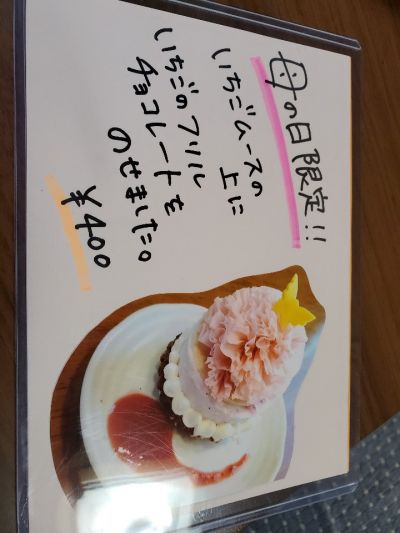 母の日限定!!
いちごムースの
上に
いちごのフリル
チョコレートを
のせました。
¥400